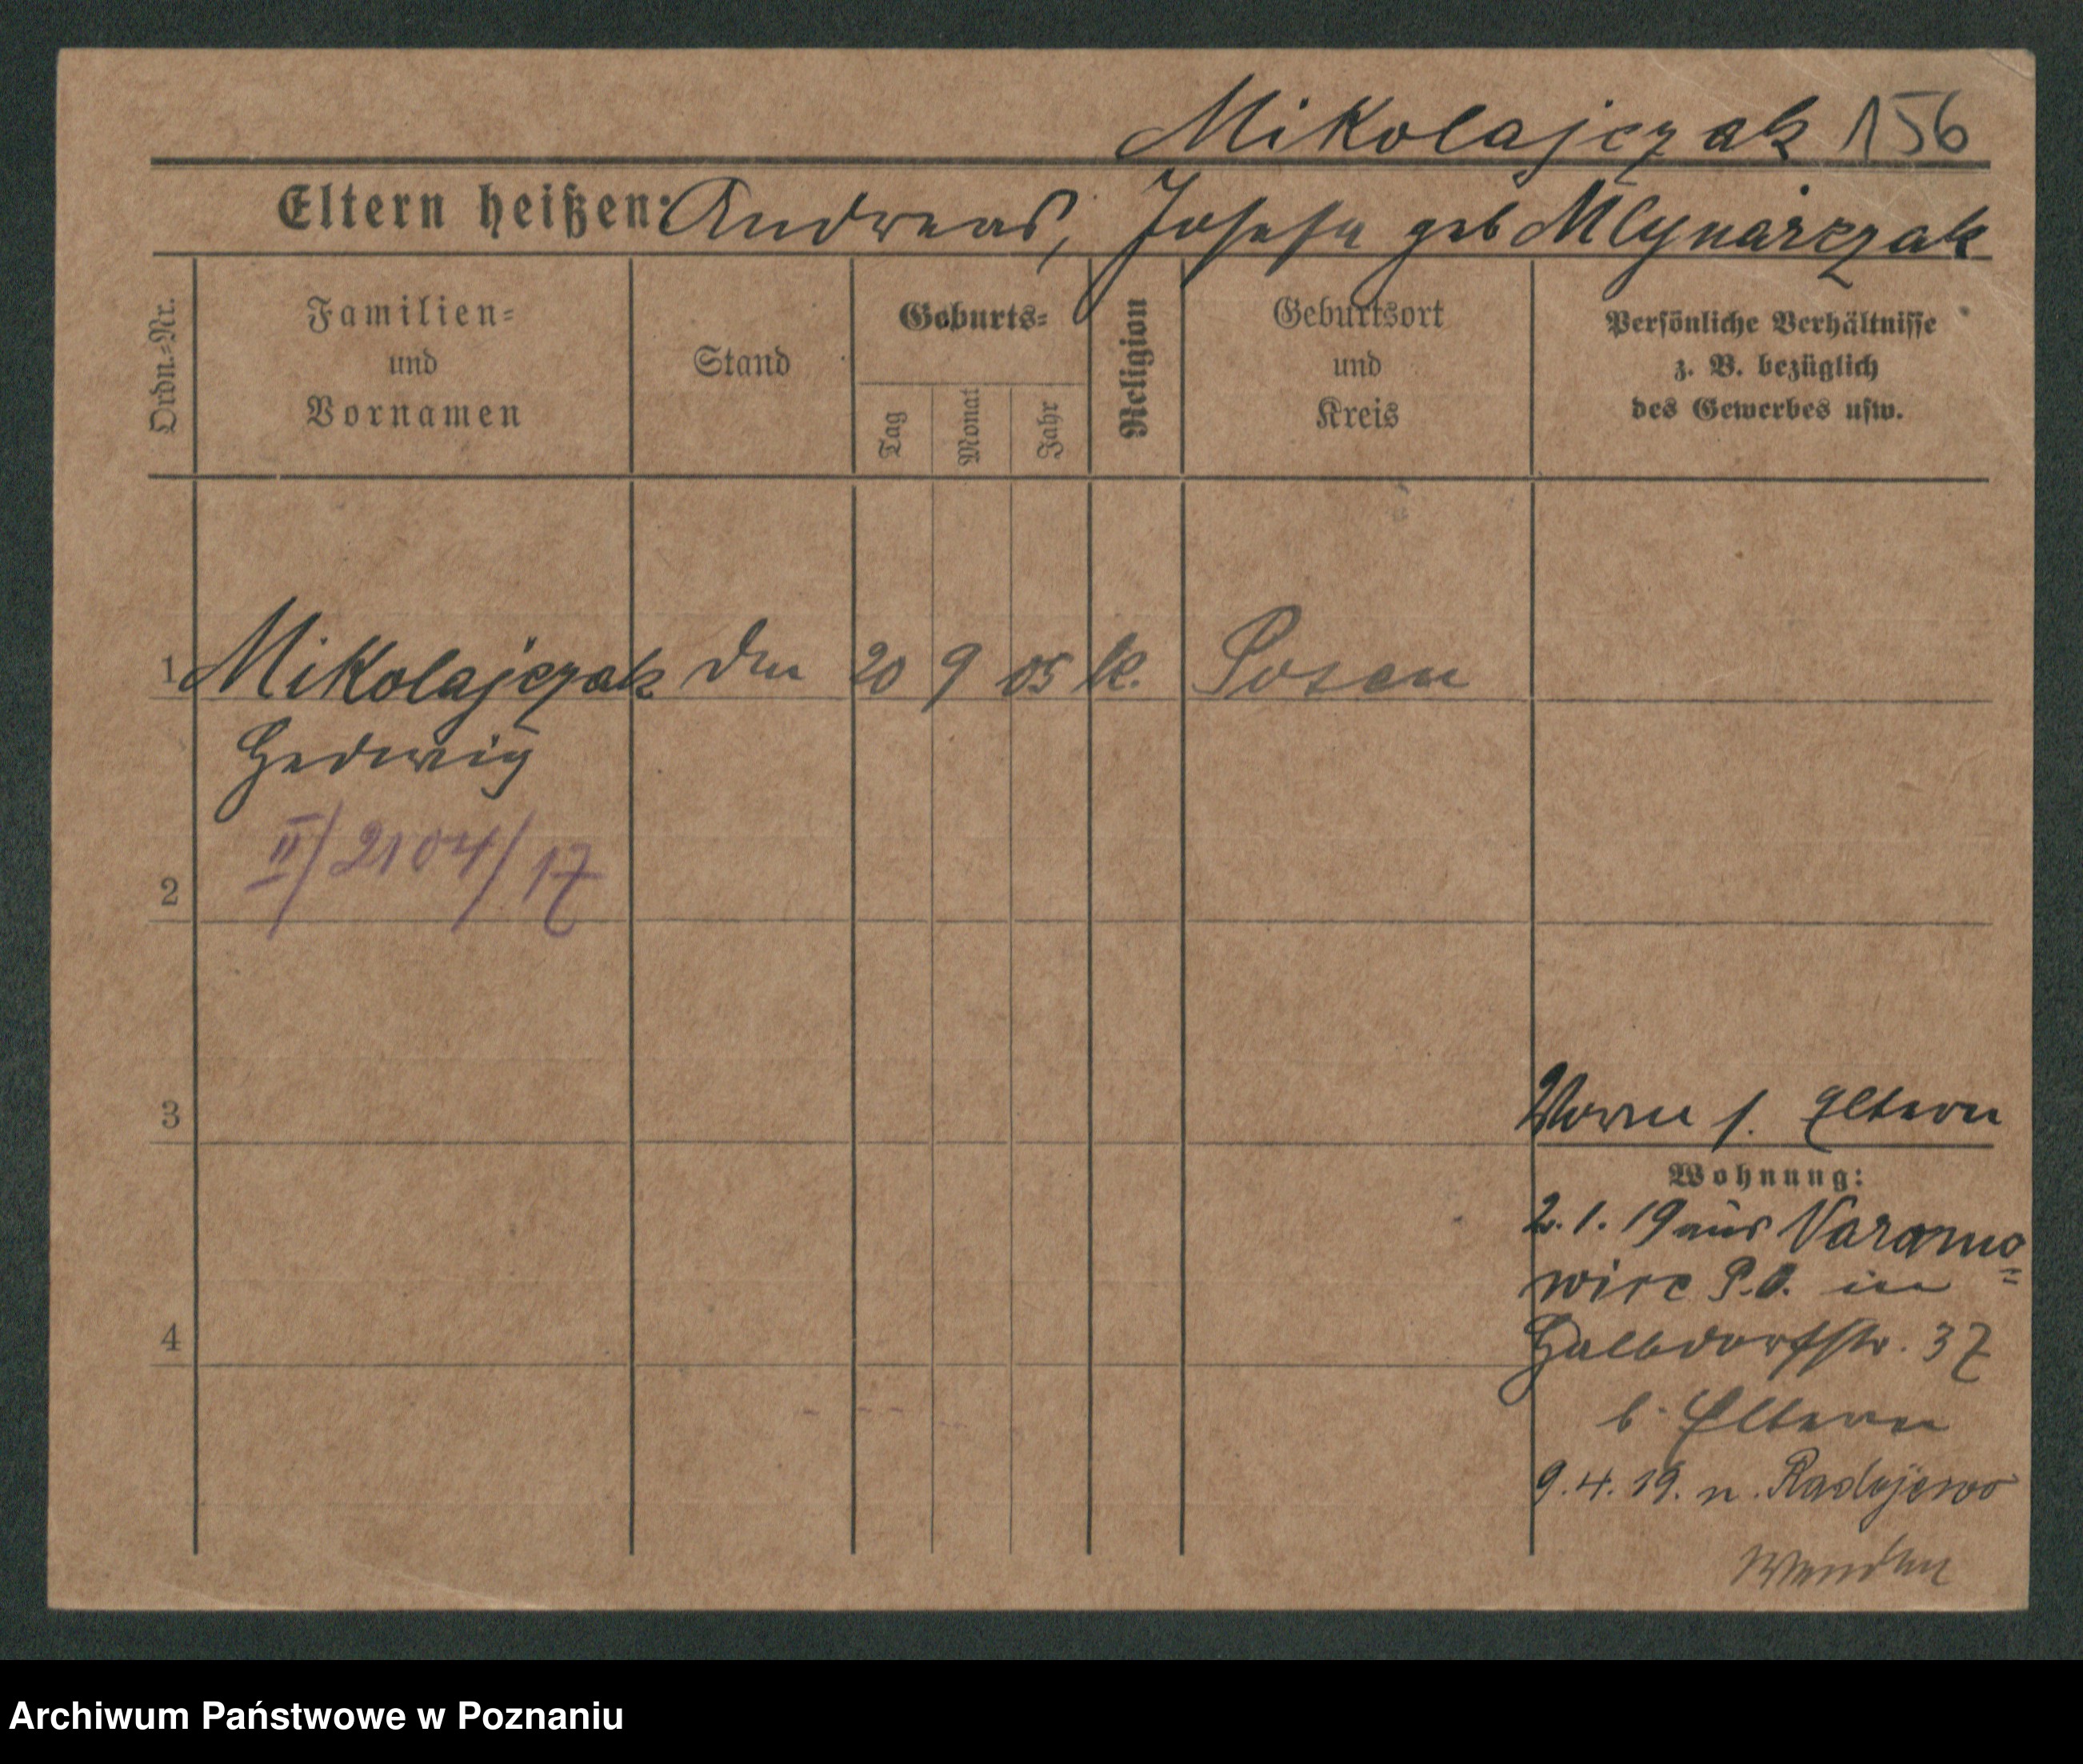 Mikolajczak 156
Eltern heißen: Andreas, Josefa geb Mlynarczak
Ordn.=Nr.
Familien=
und
Vornamen
Stand
Geburts=
Tag
Monat
Jahr
Religion
Geburtsort
und
Kreis
Persönliche Verhältnisse
z. B. bezüglich
des Gewerbes usw.
1 Mikolajczak 20 9 05 k. Posen
Hedwig
II/2104/17
2
3
Eltern
Wohnung:
2.1.19 aus
P.O. in
Halbdorfstr. 37
b. Eltern
9.4.19. n. Radojewo
wenden
4
Archiwum Państwowe w Poznaniu